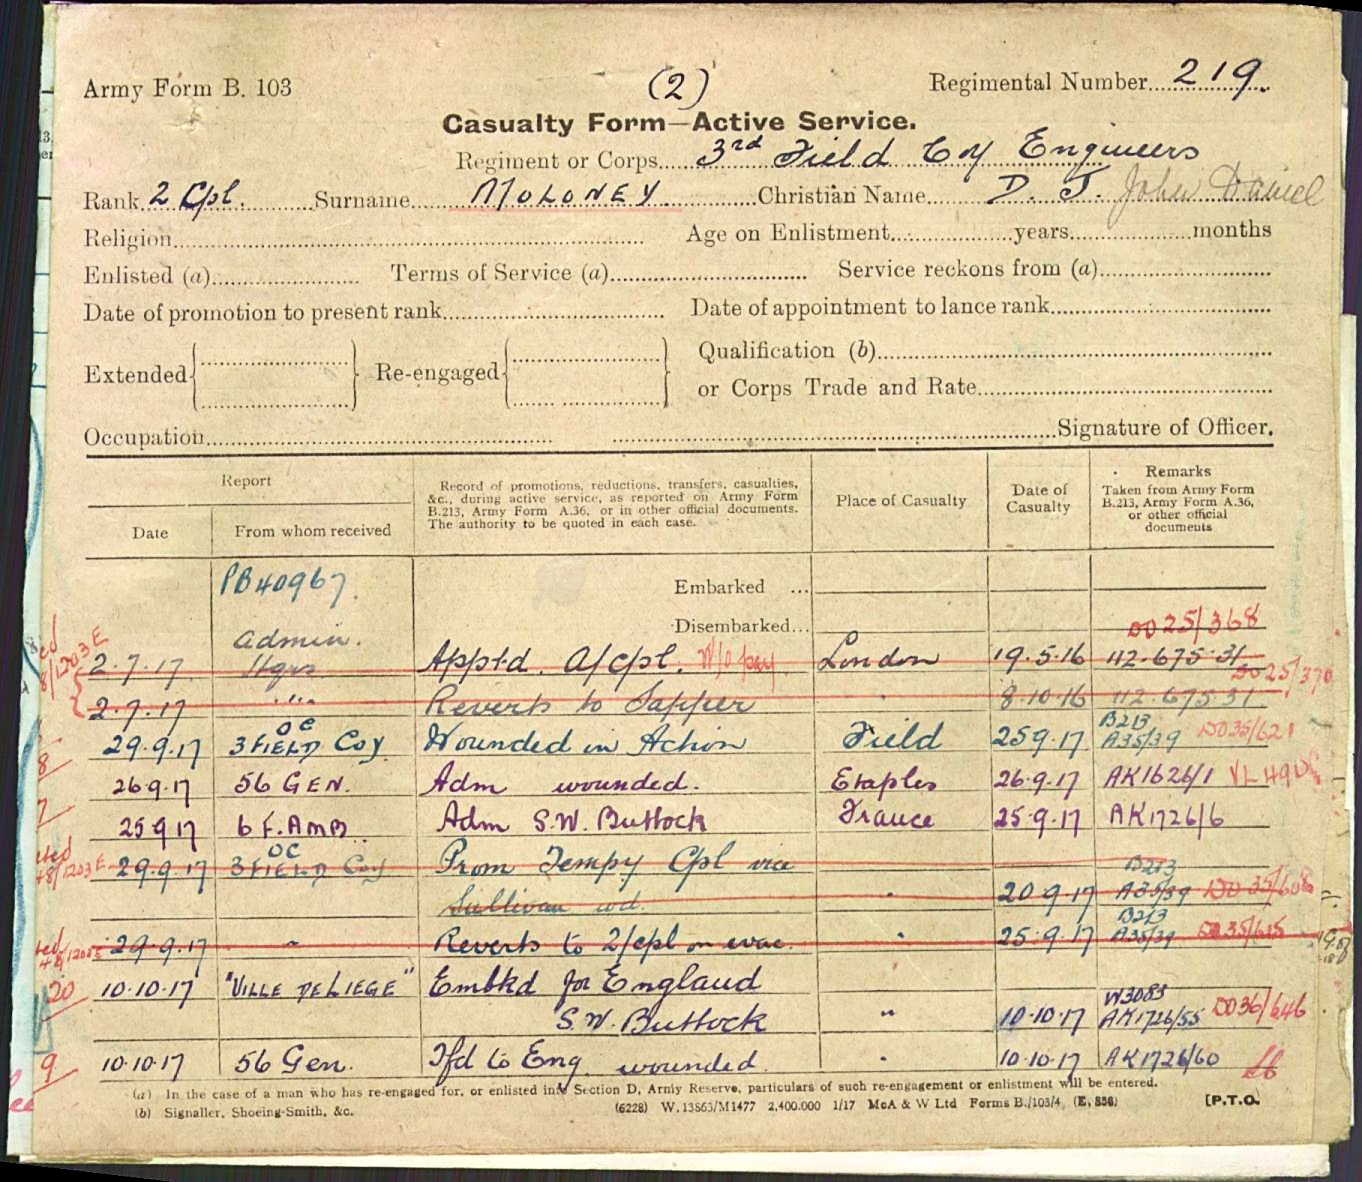 Army Form B. 103 (2) Regimental Number 219.
Casualty Form—Active Service.
Regiment or Corps 3rd Field Coy Engineers
Rank 2 Cpl. Surname MOLONEY. Christian Name D. J. John Daniel
Religion Age on Enlistment years months
Enlisted (a) Terms of Service (a) Service reckons from (a)
Date of promotion to present rank Date of appointment to lance rank
Extended Re-engaged Qualification (b)
or Corps Trade and Rate
Occupation Signature of Officer.
Report
Date From whom received
Record of promotions, reductions, transfers, casualties,
&c., during active service, as reported on Army Form
B.213, Army Form A.36, or in other official documents.
The authority to be quoted in each case.
Place of Casualty
Date of
Casualty
Remarks
Taken from Army Form
B.213, Army Form A.36,
or other official
documents
PB40967. Embarked ...
Disembarked... DO25/368
Admin.
2.7.17 Hqrs Apptd. A/Cpl. W/o pay London 19.5.16 112.675.31
DO25/370
2.7.17 " Reverts to Sapper 8.10.16 112.67531
29.9.17 OC 3 FIELD Coy Wounded in Action Field 25.9.17 B213 A35/39 DO35/621
26.9.17 56 GEN. Adm wounded. Etaples 26.9.17 AK1626/1
25.9.17 6 F. AMB Adm S.W. Buttock France 25.9.17 AK1726/6
29.9.17 OC 3 FIELD Coy Prom Tempy Cpl vice B213
Sullivan wd. " 20.9.17 A35/39 DO35/608
29.9.17 " Reverts to 2/Cpl on evac. " 25.9.17 B213 A35/39 DO35/615
10.10.17 "VILLE DE LIEGE" Embkd for England "
S.W. Buttock " 10.10.17 W3083 AK1726/55 DO36/646
10.10.17 56 Gen. Tfd to Eng wounded " 10.10.17 AK1726/60
(a) In the case of a man who has re-engaged for, or enlisted into Section D, Army Reserve, particulars of such re-engagement or enlistment will be entered.
(b) Signaller, Shoeing-Smith, &c. (6228) W.13863/M1477 2,400.000 1/17 McA & W Ltd Forms B./103/4 (E. 838) [P.T.O.